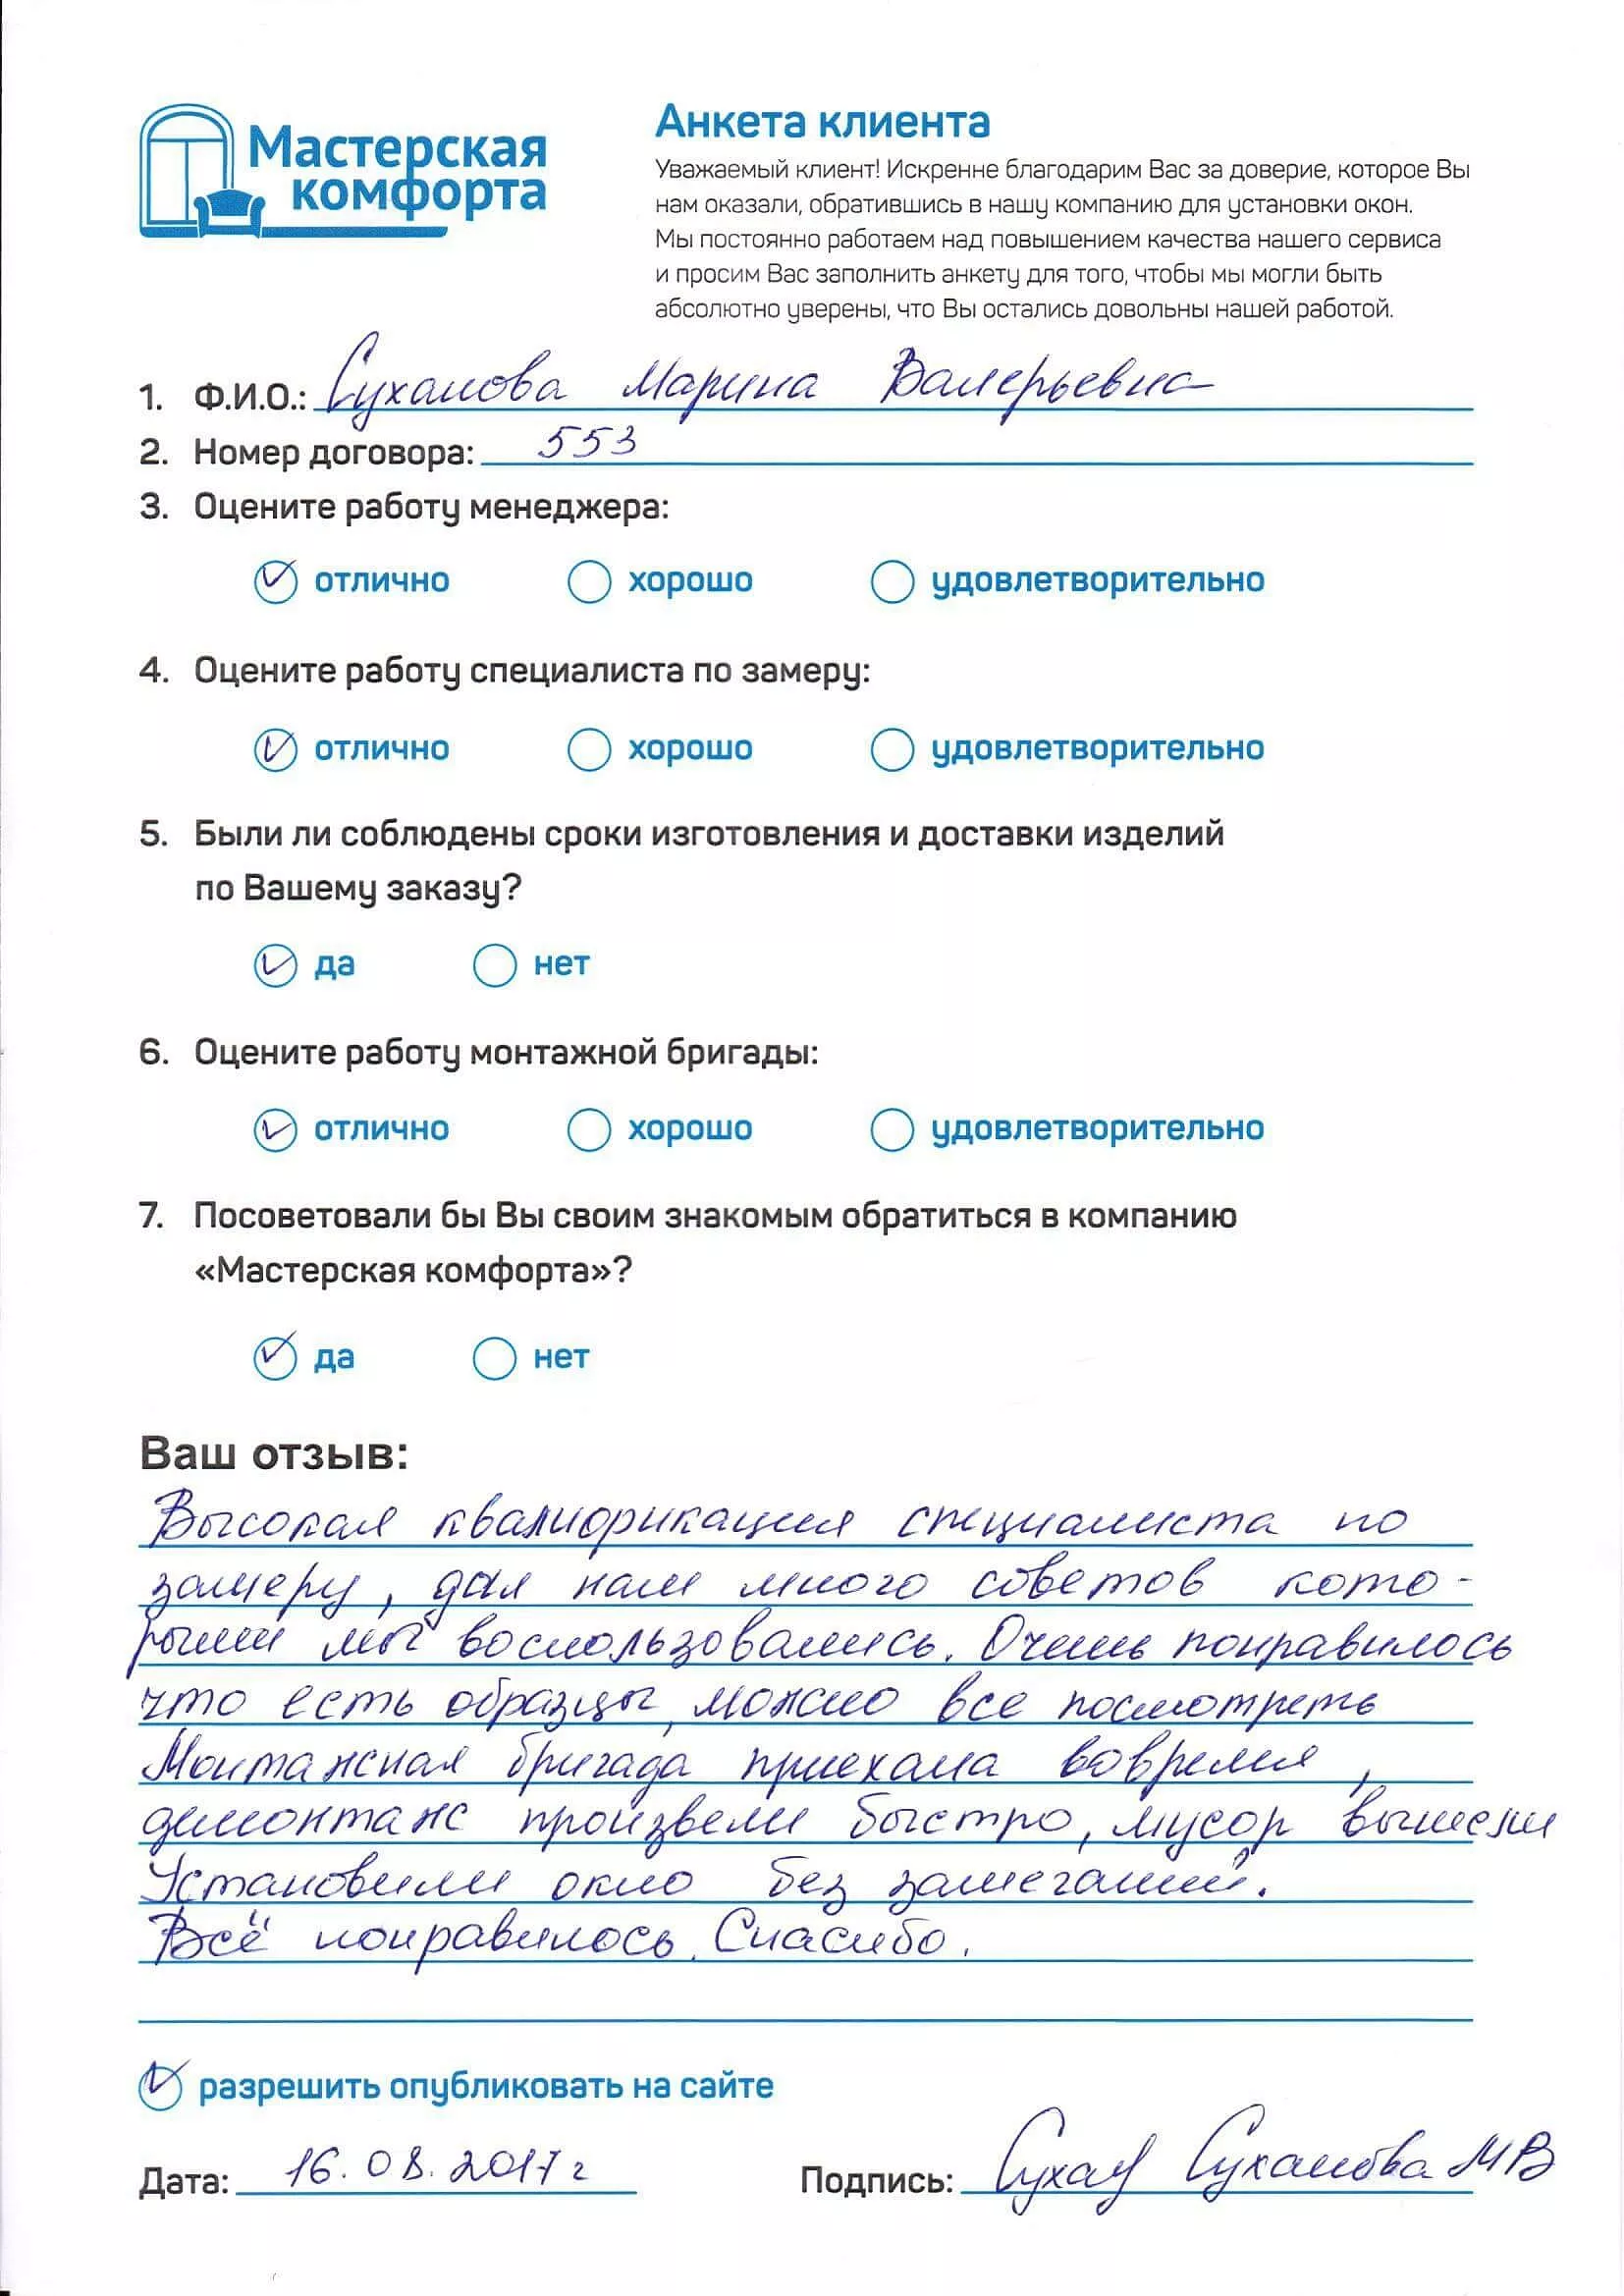 Мастерская
комфорта
Анкета клиента
Уважаемый клиент! Искренне благодарим Вас за доверие, которое Вы
нам оказали, обратившись в нашу компанию для установки окон.
Мы постоянно работаем над повышением качества нашего сервиса
и просим Вас заполнить анкету для того, чтобы мы могли быть
абсолютно уверены, что Вы остались довольны нашей работой.
1. Ф.И.О.: Суханова Марина Валерьевна
2. Номер договора: 553
3. Оцените работу менеджера:
отлично хорошо удовлетворительно
4. Оцените работу специалиста по замеру:
отлично хорошо удовлетворительно
5. Были ли соблюдены сроки изготовления и доставки изделий
по Вашему заказу?
да нет
6. Оцените работу монтажной бригады:
отлично хорошо удовлетворительно
7. Посоветовали бы Вы своим знакомым обратиться в компанию
«Мастерская комфорта»?
да нет
Ваш отзыв:
Высокая квалификация специалиста по
замеру, дал нам много советов кото-
рыми мы воспользовались. Очень понравилось
что есть образцы, можно все посмотреть
Монтажная бригада приехала вовремя,
демонтаж произвели быстро, мусор вынесли
Установили окно без замечаний.
Всё понравилось. Спасибо.
разрешить опубликовать на сайте
Дата: 16.08.2017 г Подпись: Сухан Суханова МВ